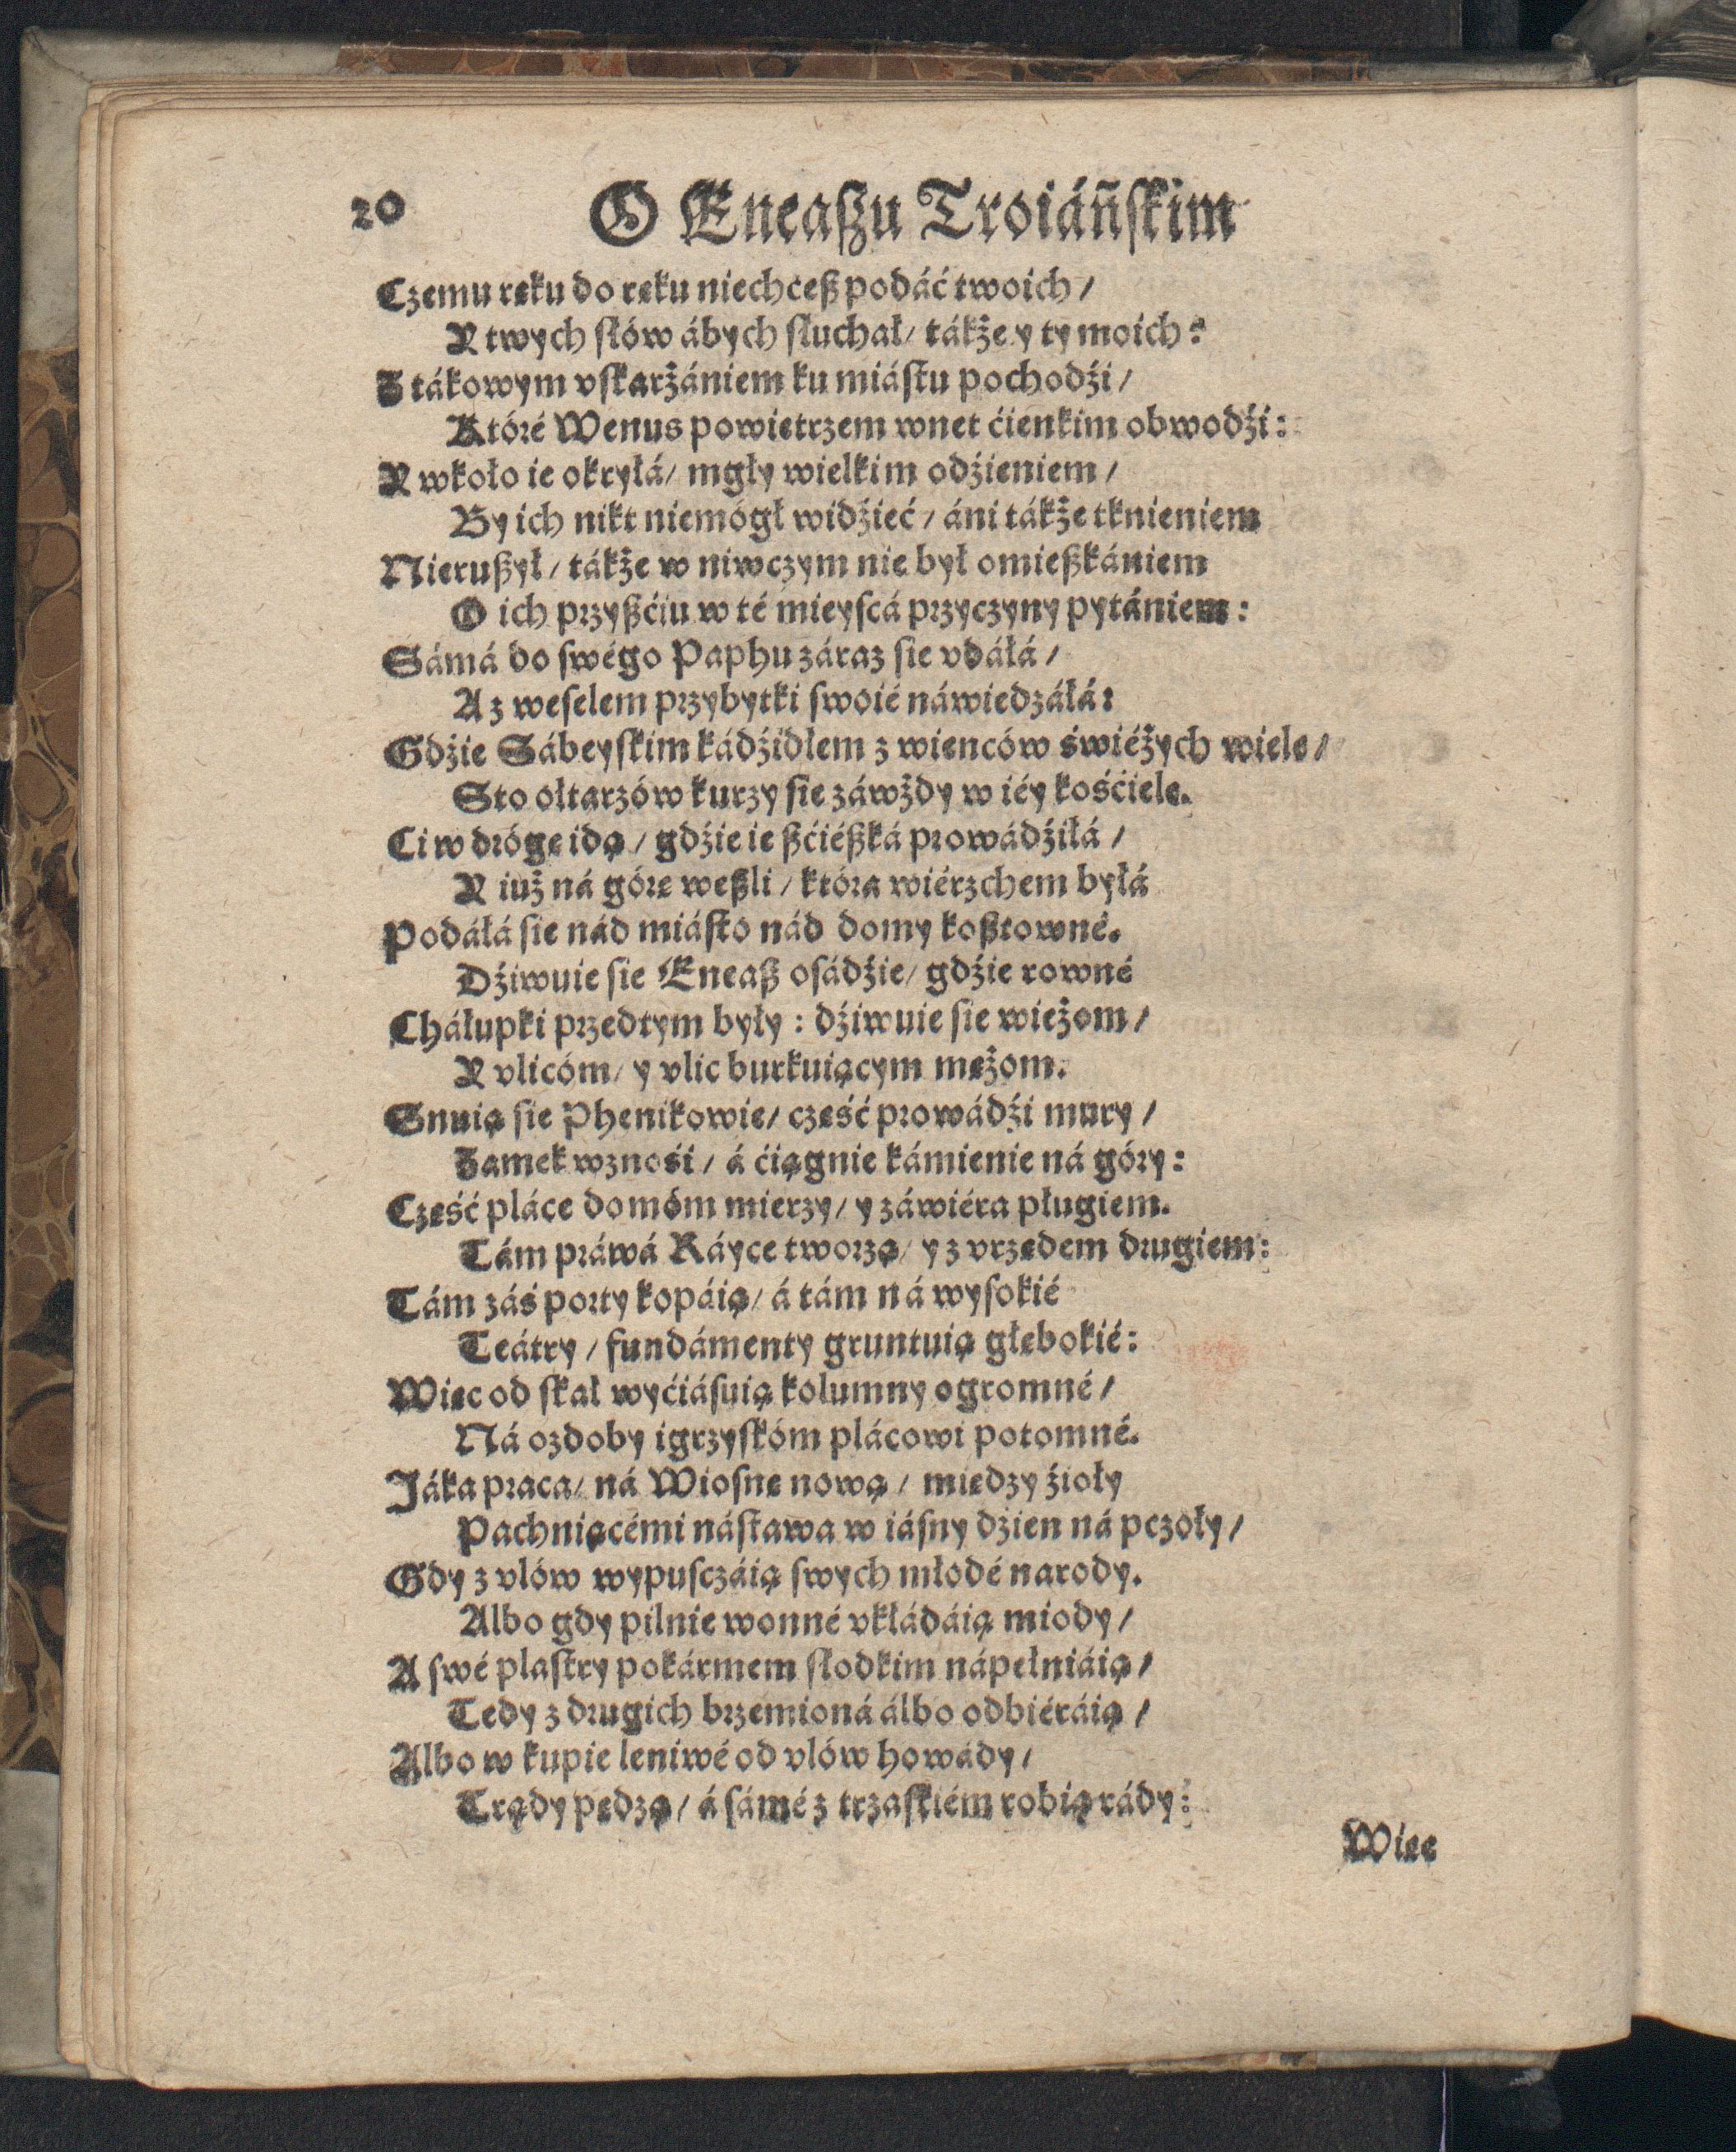 20 O Eneaszu Troiáńskim
Czemu ręku do ręku niechcesz podáć twoich /
Y twych słów ábych słuchał / tákże y ty moich ?
Z tákowym vskarżániem ku miástu pochodźi /
Któré Wenus powietrzem wnet ćienkim obwodźi :
Y wkoło ie okryłá / mgły wielkim odźieniem /
By ich nikt niemógł widźieć / áni tákże tknieniem
Nieruszył / tákże w niwczym nie był omieszkániem
O ich przyszćiu w té mieyscá przyczyny pytániem :
Sámá do swégo Paphu záraz sie vdáłá /
A z weselem przybytki swoié náwiedzáłá :
Gdźie Sábeyskim kádźidłem z wienców świéżych wiele /
Sto ołtarzów kurzy sie záwżdy w iéy kośćiele.
Ci w drógę idą / gdźie ie szćiészká prowádźiłá /
Y iuż ná górę weszli / która wiérzchem byłá
Podáłá sie nád miásto nád domy kosztowné.
Dźiwuie sie Eneasz osádźie / gdźie rowné
Cháłupki przedtym były : dźiwuie sie wieżom /
Y vlicóm / y vlic burkuiącym mężom.
Snuią sie Phenikowie / część prowádźi mury /
Zamek wznośi / á ćiągnie kámienie ná góry :
Część pláce domóm mierzy / y záwiéra pługiem.
Tám práwá Ráyce tworzą / y z vrzędem drugiem :
Tám záś porty kopáią / á tám ná wysokié
Teátry / fundámenty gruntuią głębokié :
Więc od skał wyćiásuią kolumny ogromné /
Ná ozdoby igrzyskóm plácowi potomné.
Jáka praca / ná Wiosnę nową / miedzy źioły
Pachniącémi nástawa w iásny dźien ná pczoły /
Gdy z vlów wypusczáią swych młodé narody.
Albo gdy pilnie wonné vkłádáią miody /
A swé plastry pokármem słodkim nápełniáią /
Tedy z drugich brzemioná álbo odbiéráią /
Albo w kupie leniwé od vlów howády /
Trądy pędzą / á sámé z trzaskiém robią rády :
Więc